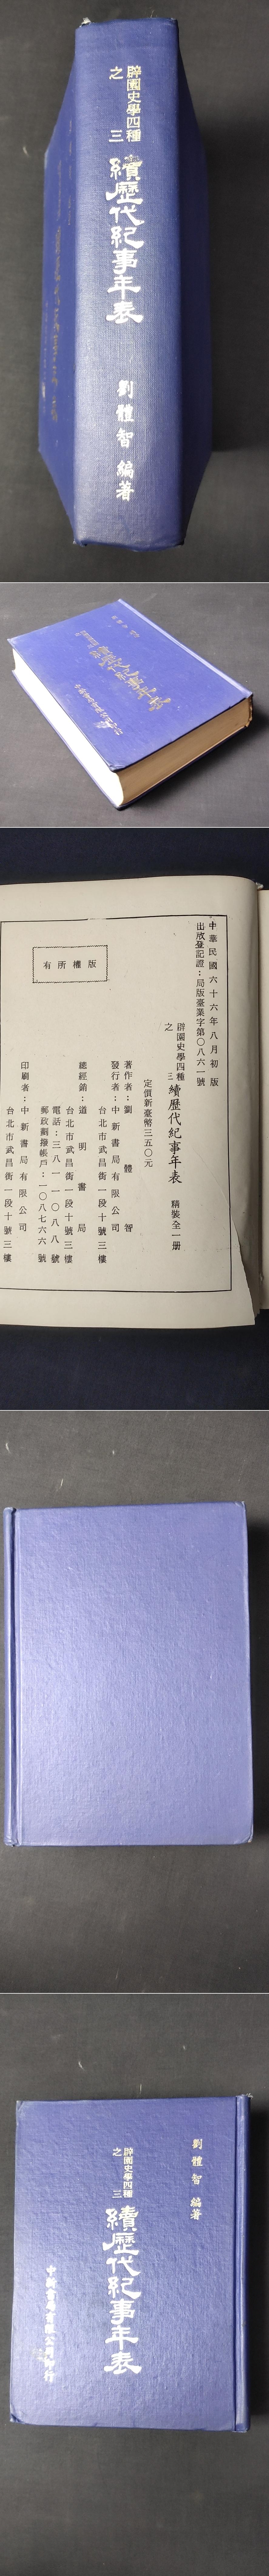 辟園史學四種
之三
續歷代紀事年表
劉體智 編著
中華民國六十六年八月初版
出版登記證：局版臺業字第〇八六一號
辟園史學四種
之三
續歷代紀事年表 精裝全一册
定價新臺幣三五〇元
版權所有
著作者：劉體智
發行者：中新書局有限公司
台北市武昌街一段十號三樓
總經銷：道明書局
台北市武昌街一段十號三樓
電話：三八一一〇八八號
郵政劃撥帳戶：一〇八七六六號
印刷者：中新書局有限公司
台北市武昌街一段十號三樓
劉體智 編著
辟園史學四種
之三
續歷代紀事年表
中新書局有限公司印行